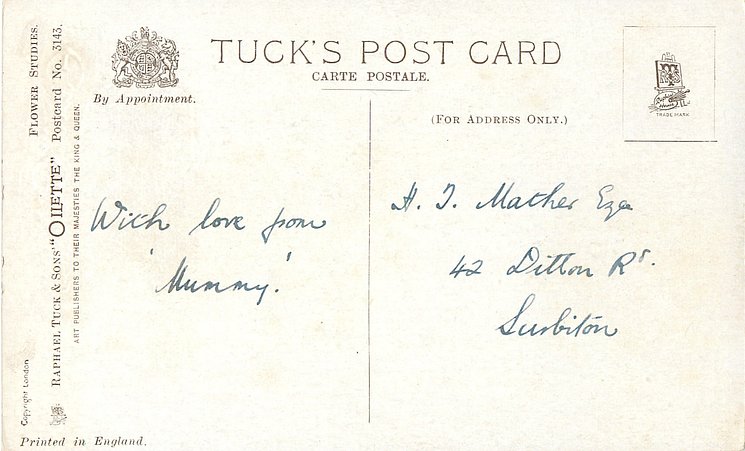 TUCK'S POST CARD
CARTE POSTALE.
By Appointment.
(FOR ADDRESS ONLY.)
TRADE MARK
FLOWER STUDIES.
RAPHAEL TUCK & SONS' "OILETTE" Postcard No. 3143.
ART PUBLISHERS TO THEIR MAJESTIES THE KING & QUEEN.
Copyright London
With love from
'Mummy.'
H. J. Mather Esqe
42 Ditton Rd.
Surbiton
Printed in England.